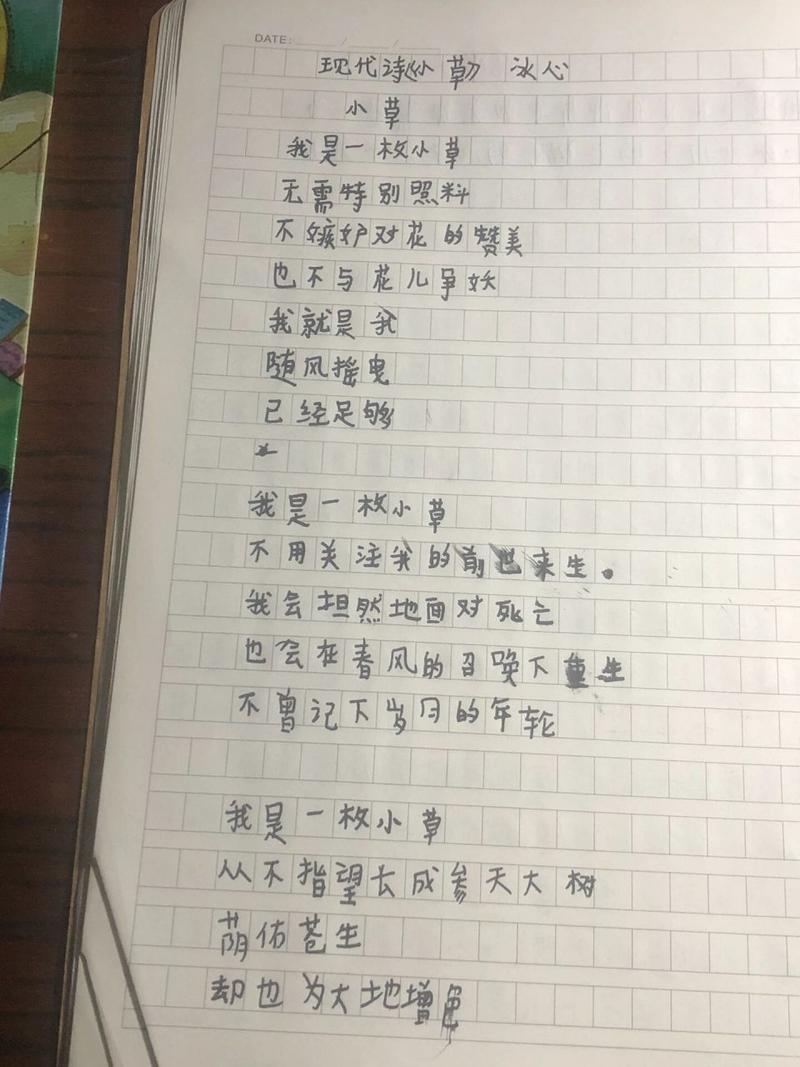 DATE: / /
现代诗《小草》 冰心
小草
我是一枚小草
无需特别照料
不嫉妒对花的赞美
也不与花儿争妖
我就是我
随风摇曳
已经足够
我是一枚小草
不用关注我的前世来生。
我会坦然地面对死亡
也会在春风的召唤下重生
不曾记下岁月的年轮
我是一枚小草
从不指望长成参天大树
荫佑苍生
却也为大地增色